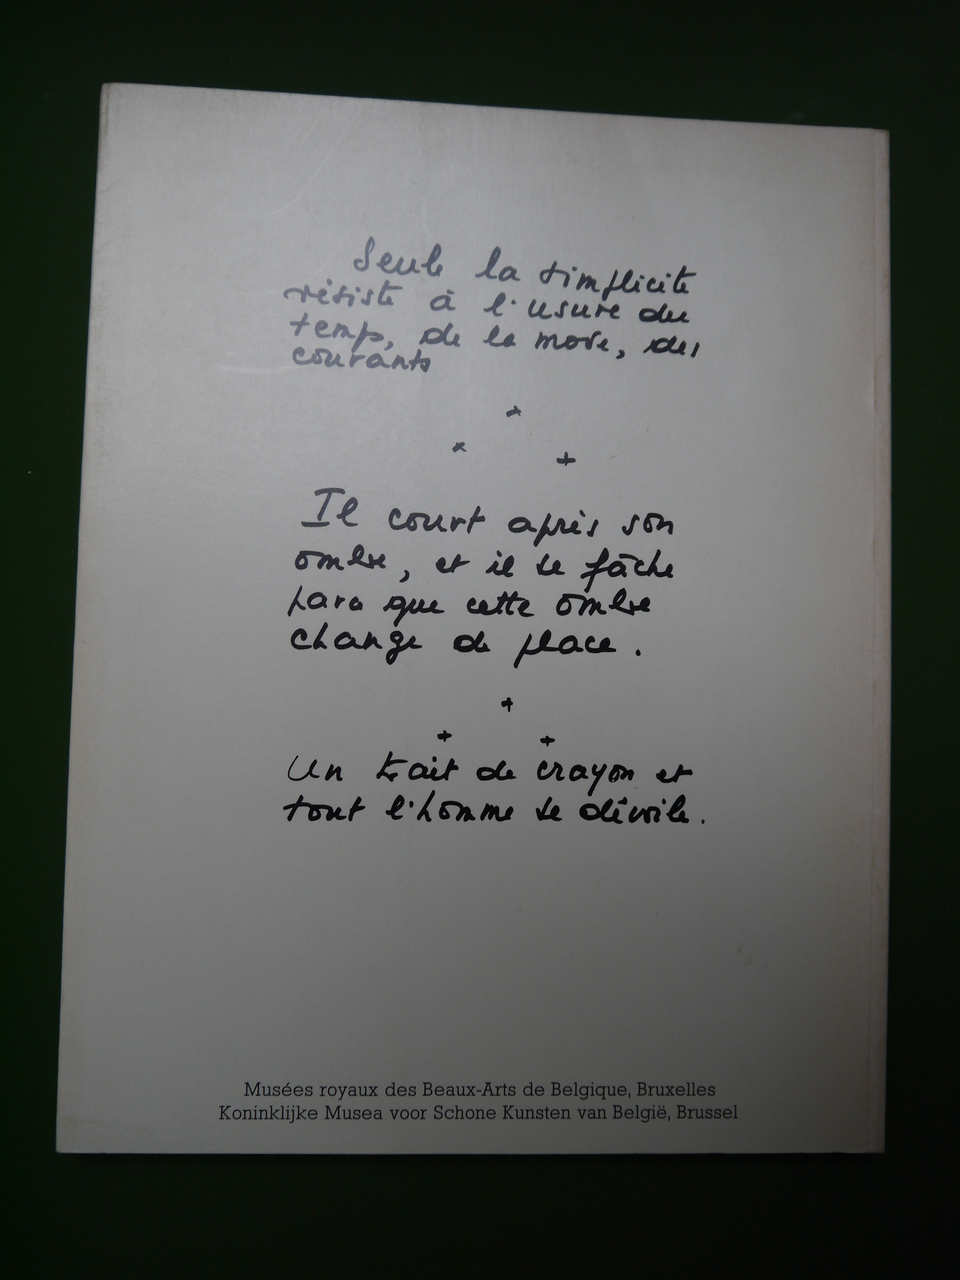 Seule la simplicité
résiste à l'usure du
temps, de la mode, des
courants
Il court après son
ombre, et il se fâche
parce que cette ombre
change de place.
Un trait de crayon et
tout l'homme se dévoile.
Musées royaux des Beaux-Arts de Belgique, Bruxelles
Koninklijke Musea voor Schone Kunsten van België, Brussel